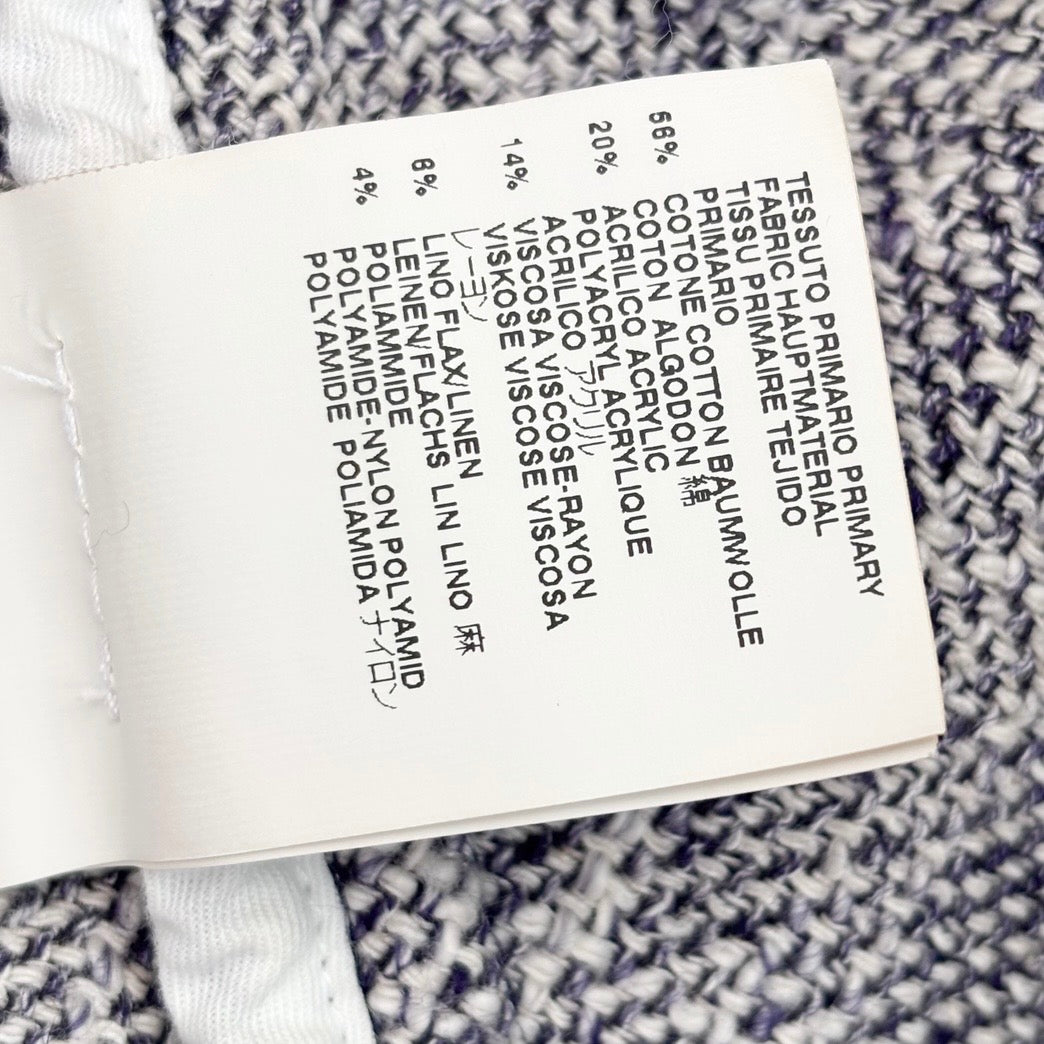 TESSUTO PRIMARIO PRIMARY
FABRIC HAUPTMATERIAL
TISSU PRIMAIRE TEJIDO
PRIMARIO
56% COTONE COTTON BAUMWOLLE
COTON ALGODON 綿
20% ACRILICO ACRYLIC
POLYACRYL ACRYLIQUE
ACRILICO アクリル
14% VISCOSA VISCOSE-RAYON
VISKOSE VISCOSE VISCOSA
レーヨン
6% LINO FLAX/LINEN
LEINEN/FLACHS LIN LINO 麻
4% POLIAMMIDE
POLYAMIDE-NYLON POLYAMID
POLYAMIDE POLIAMIDA ナイロン